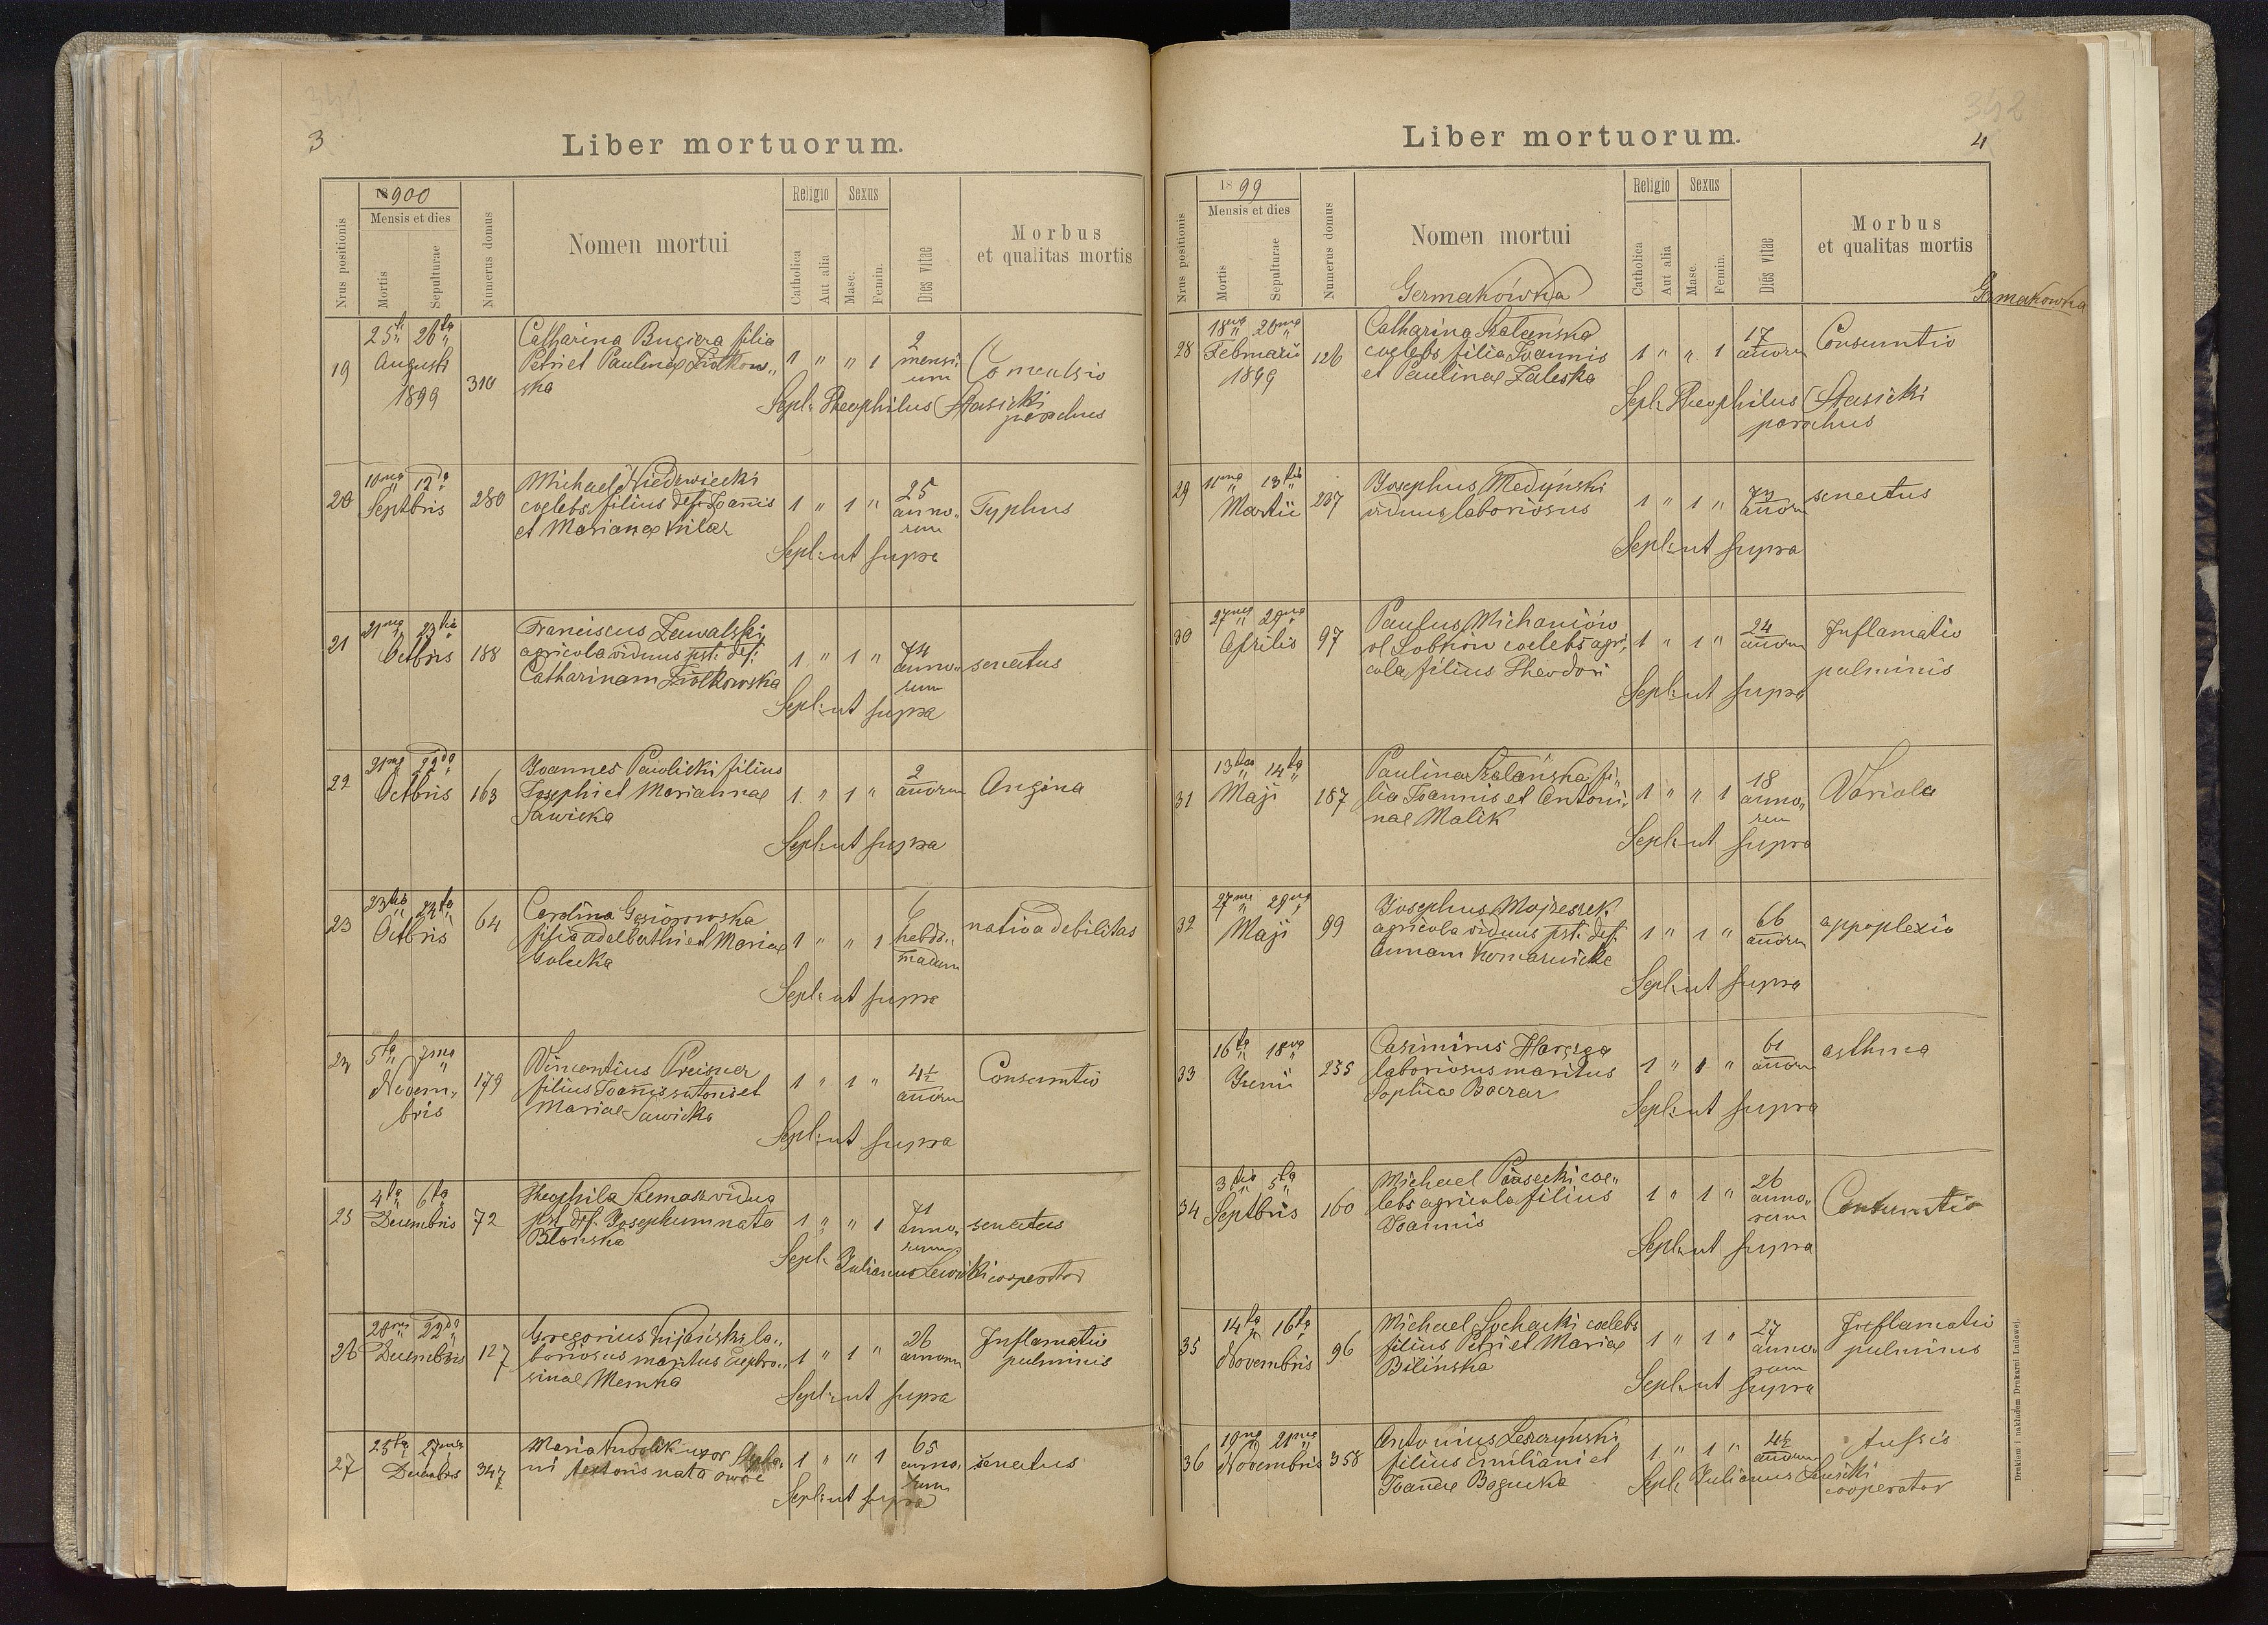 349
3
Liber mortuorum.
Nrus positionis
1900
Mensis et dies
Mortis
Sepulturae
Numerus domus
Nomen mortui
Religio
Catholica
Aut alia
Sexus
Masc.
Femin.
Dies vitae
Morbus
et qualitas mortis
19
25ta 26ta
Augusti
1899
310
Catharina Buciora filia
Petri et Paulinae Ziółkow„
ska
1 „ „ 1
2
mensi„
um
Convulsio
Sepl: Theophilus Stasicki
parochus
20
10ma 12da
Septbris
280
Michael Niedzwiecki
coelebs filius def: Joannis
et Mariannae
1 „ 1 „
25
anno„
rum
Typhus
Sepl: ut supra
21
21ma 23tia
Octbris
188
Franciscus Zawalski
agricola viduus pst: def:
Catharinam Ziółkowska
1 „ 1 „
74
anno„
rum
senectus
Sepl: ut supra
22
21ma 22da
Octbris
163
Joannes Pawlicki filius
Josephi et Mariannae
Sawicka
1 „ 1 „
2
annorum
Angina
Sepl: ut supra
23
23tia 24ta
Octbris
64
Carolina Gąsiorowska
filia Adalberthi et Mariae
1 „ „ 1
6
hebdo„
madum
nativa debilitas
Sepl: ut supra
24
5ta 7ma
Novem„
bris
179
Vincentius Preisner
filius Joannis sutoris et
Mariae Sawicka
1 „ 1 „
4½
annorum
Consumtio
Sepl: ut supra
25
4ta 6ta
Decembris
72
Theophila Szemasz vidua
pst. def. Josephum nata
Błońska
1 „ „ 1
71
anno„
rum
senectus
Sepl: Julianus Lewicki cooperator
26
20ma 22da
Decembris
127
Gregorius Kijański la„
boriosus maritus Euphro„
sinae Memka
1 „ 1 „
26
annorum
Inflamatio
pulminis
Sepl: ut supra
27
25ta 27ma
Decembris
347
Maria uxor Stepha„
ni textoris nata
1 „ „ 1
65
anno„
rum
senectus
Sepl: ut supra
348
4
Liber mortuorum.
Nrus positionis
1899
Mensis et dies
Mortis
Sepulturae
Numerus domus
Nomen mortui
Germakówka
Religio
Catholica
Aut alia
Sexus
Masc.
Femin.
Dies vitae
Morbus
et qualitas mortis
Germakowka
28
18va 20ma
Februarii
1899
126
Catharina Szalańska
coelebs filia Joannis
et Paulinae Zaleska
1 „ „ 1
17
annorum
Consumtio
Sepl: Theophilus Stasicki
parochus
29
11ma 13tia
Martii
237
Josephus Medyński
viduus laboriosus
1 „ 1 „
annorum
senectus
Sepl: ut supra
30
27ma 29na
Aprilis
97
Paulus Michaniów
vl Sobków coelebs agri„
cola filius Theodori
1 „ 1 „
24
annorum
Inflamatio
pulminis
Sepl: ut supra
31
13tia 14ta
Maji
187
Paulina Szalańska fi„
lia Joannis et Antoni„
nae Malik
1 „ „ 1
18
anno„
rum
Variola
Sepl: ut supra
32
27ma 29na
Maji
99
Josephus Mojzeszek
agricola viduus pst. def.
Annam Komarnicka
1 „ 1 „
66
annorum
appoplexio
Sepl: ut supra
33
16ta 18va
Junii
235
Casimirus Haręzga
laboriosus maritus
Sophiae Boczar
1 „ 1 „
61
annorum
asthma
Sepl: ut supra
34
3tia 5ta
Septbris
160
Michael Piasecki coe„
lebs agricola filius
Joannis
1 „ 1 „
26
anno„
rum
Consumtio
Sepl: ut supra
35
14ta 16ta
Novembris
96
Michael Sochacki coelebs
filius Petri et Mariae
Bilińska
1 „ 1 „
27
anno„
rum
Inflamatio
pulminis
Sepl: ut supra
36
19na 21ma
Novembris
358
Antonius Leszczyński
filius Emiliani et
Joannae Bogucka
1 „ 1 „
4½
annorum
tussis
Sepl: Julianus Lewicki
cooperator
Drukiem i nakładem Drukarni Ludowej.